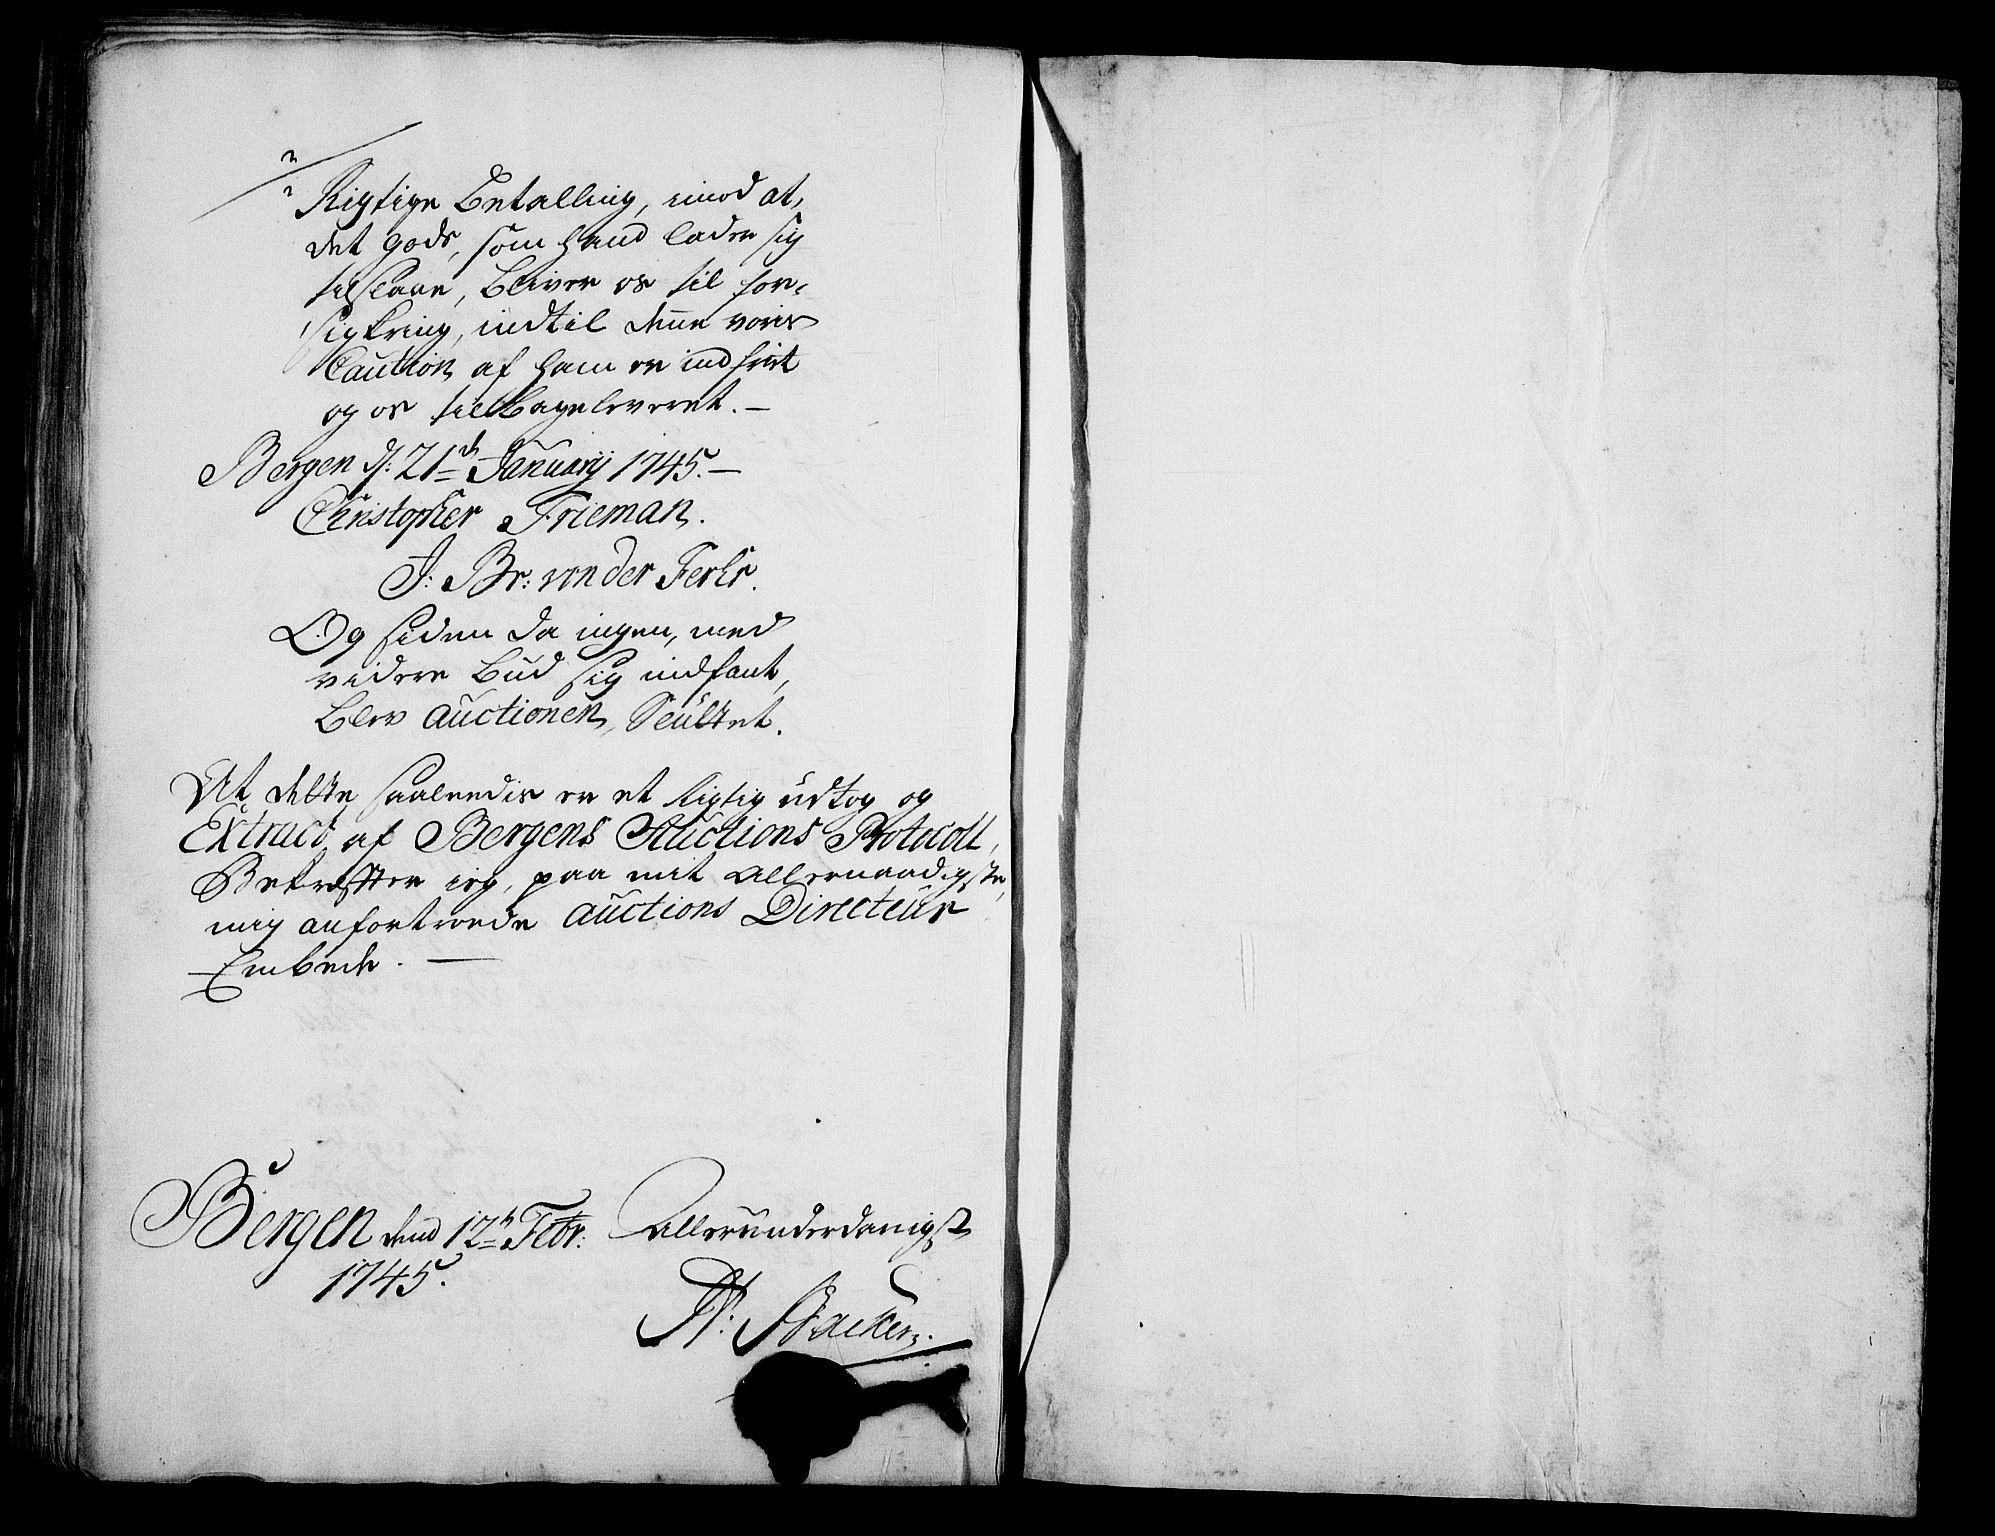 Rigtige Betalling, imod at,
det gods, som hand lader sig
tilslaae, bliver os til for-
sigkring, indtil denne voris
Caution af ham er indfriet
og os tilbageleveret. —
Bergen d: 21de January 1745. —
Christopher Frieman.
J: Br: von der Fehr.
Og siden da ingen, med
videre bud sig indfant,
blev Auctionen Sluttet.
At dette saaledis er et rigtig udtog og
Extract af Bergens Auctions Protocoll,
Bekræffter jeg, paa mit allernaadigste
mig anfortroede Auctions Directeur
Embede. —
Bergen dend 12te Febr: Allerunderdanigst
1745.